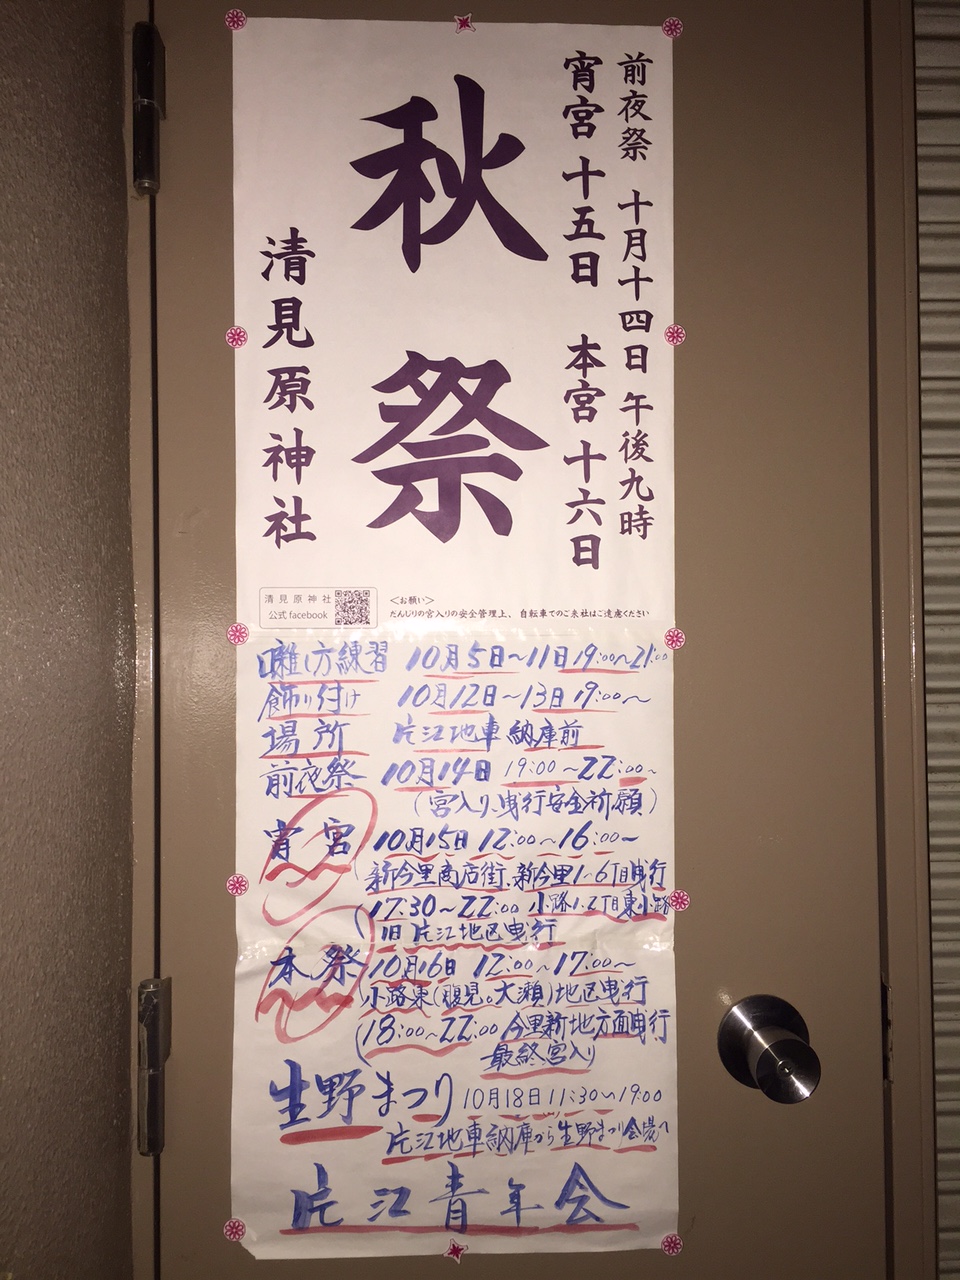 前夜祭 十月十四日 午後九時
宵宮 十五日 本宮 十六日
秋祭
清見原神社
清見原神社
公式facebook
<お願い>
だんじりの宮入りの安全管理上、自転車でのご来社はご遠慮ください
囃し方練習 10月5日〜11日19:00〜21:00
飾り付け 10月12日〜13日19:00〜
場所 片江地車納庫前
前夜祭 10月14日 19:00〜22:00〜
(宮入り、曳行安全祈願)
宵宮 10月15日 12:00〜16:00〜
新今里商店街、新今里1〜6丁目曳行
17:30〜22:00 小路1.2丁目東小路
旧片江地区曳行
本祭 10月16日 12:00〜17:00〜
小路東(腹見。大瀬)地区曳行
18:00〜22:00 今里新地方面曳行
最終宮入り
生野まつり 10月18日11:30〜19:00
片江地車納庫から生野まつり会場へ
片江青年会